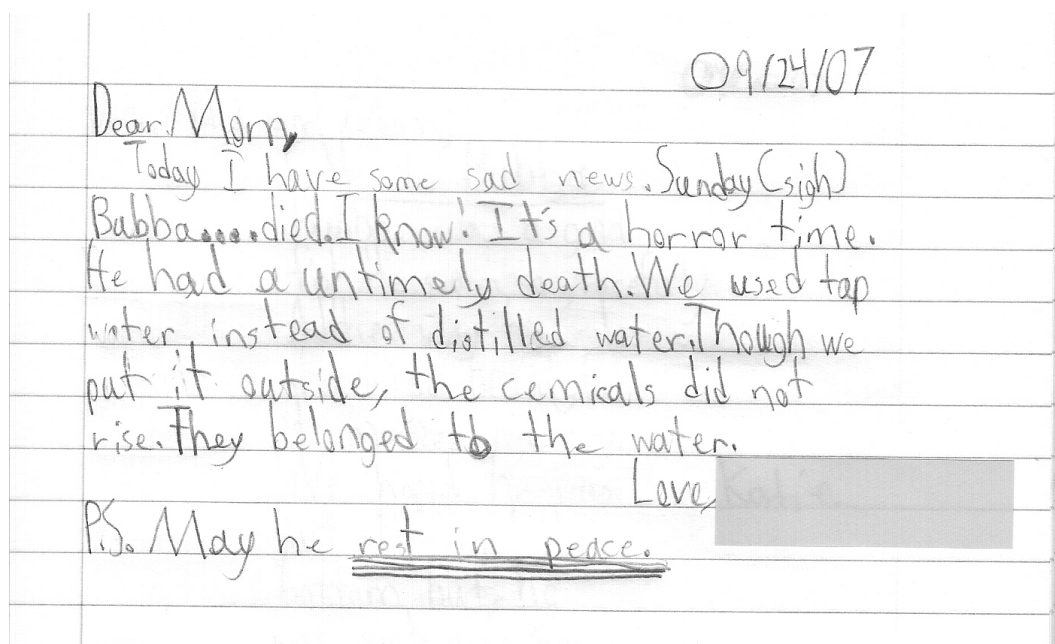 09/24/07
Dear Mom,
Today I have some sad news. Sunday (sigh)
Bubba.....died. I know! It's a horror time.
He had a untimely death. We used tap
water, instead of distilled water. Though we
put it outside, the cemicals did not
rise. They belonged to the water.
Love,
P.S. May he rest in peace.